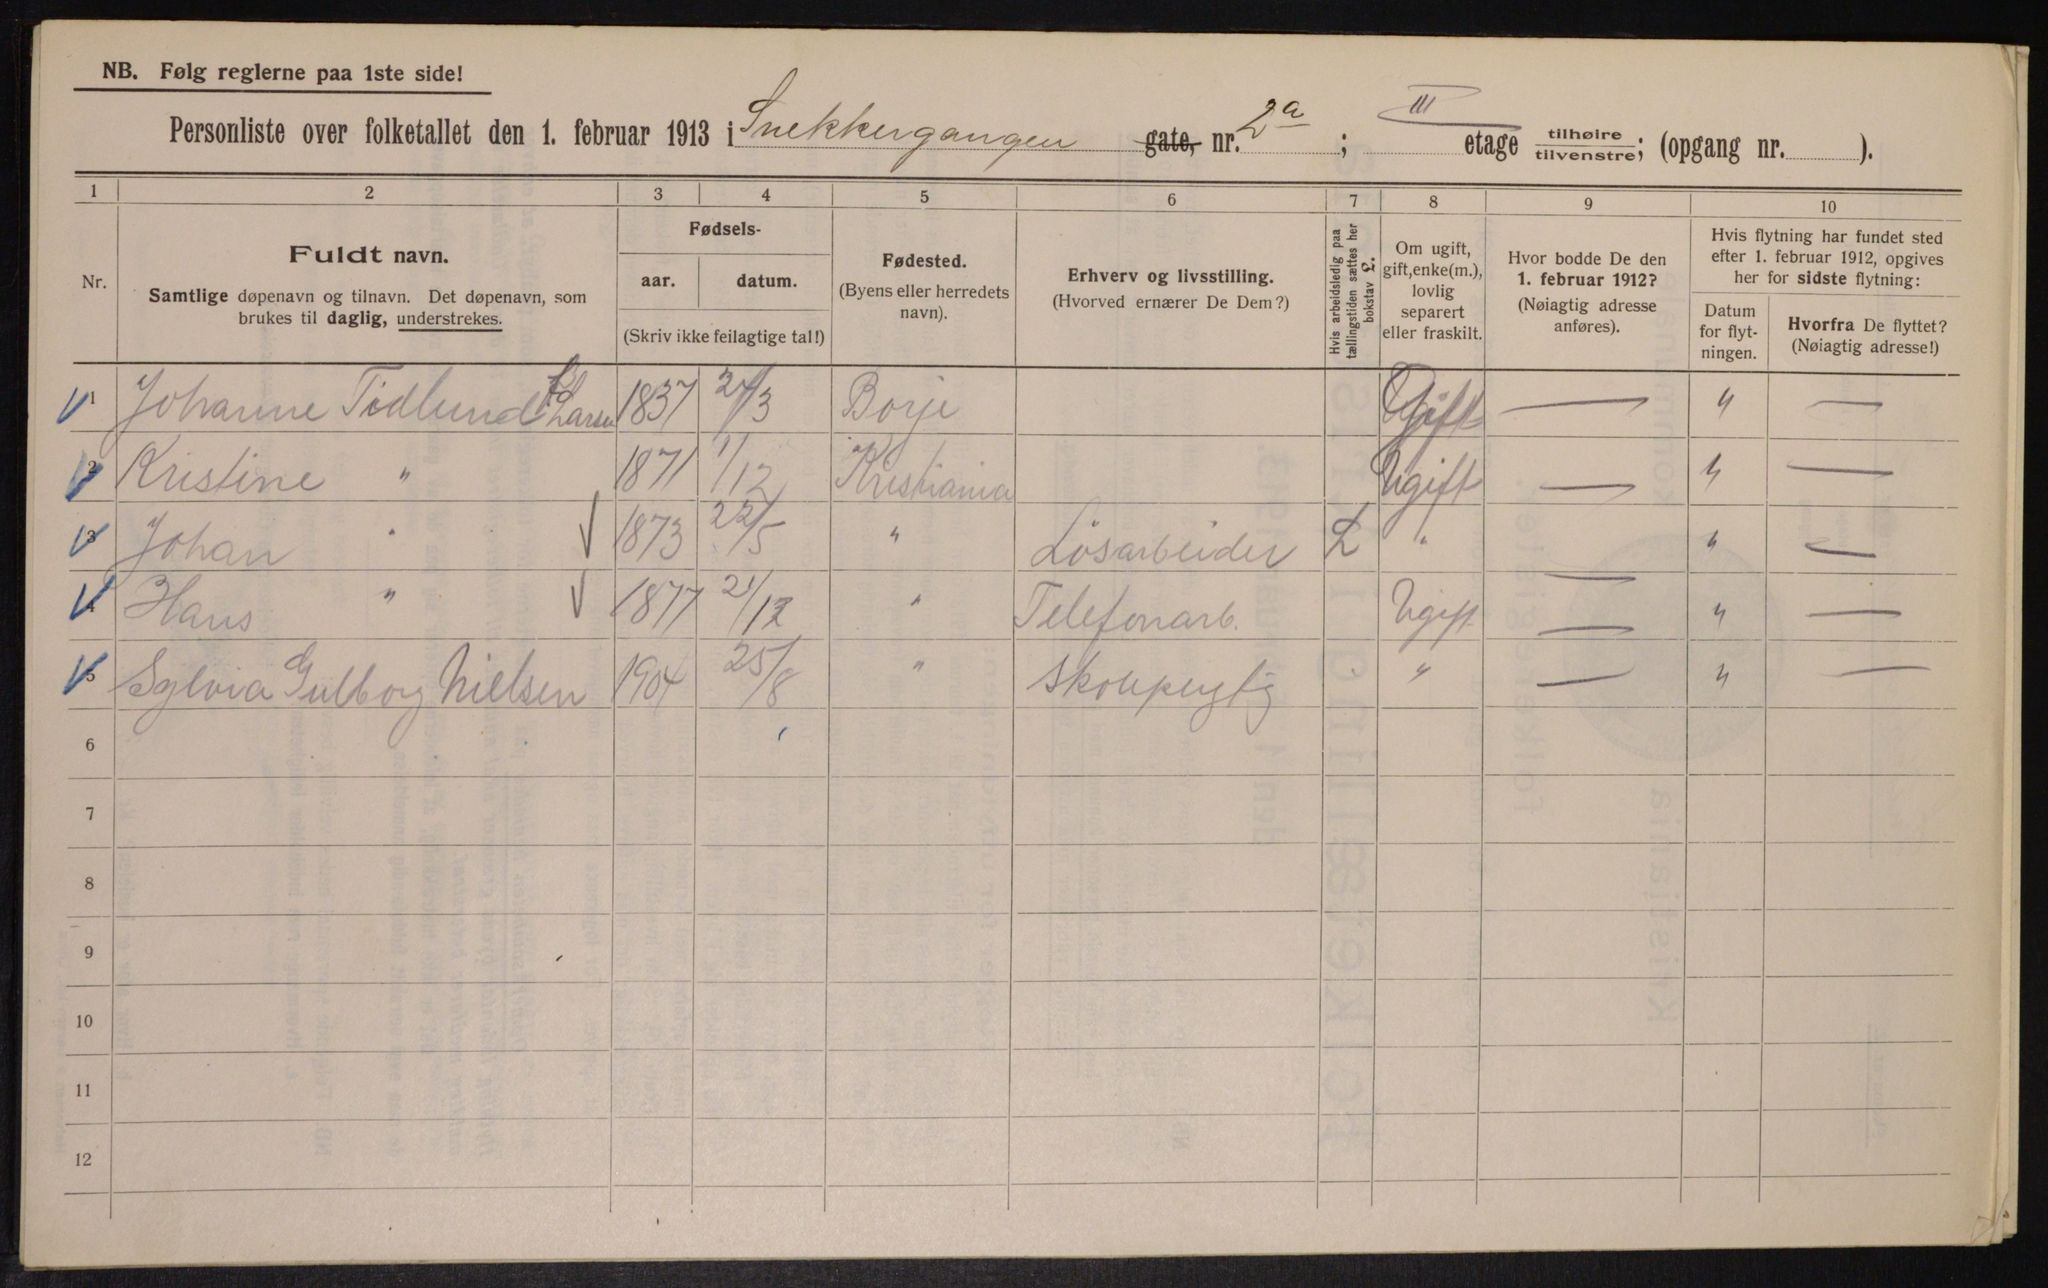 NB. Følg reglerne paa 1ste side!
Personliste over folketallet den 1. februar 1913 i Snekkergangen gate, nr. 2a ; III etage tilhøire tilvenstre; (opgang nr. ).
1 2 3 4 5 6 7 8 9 10
Nr.
Fuldt navn.
Samtlige døpenavn og tilnavn. Det døpenavn, som
brukes til daglig, understrekes.
Fødsels-
aar. datum.
(Skriv ikke feilagtige tal!)
Fødested.
(Byens eller herredets
navn).
Erhverv og livsstilling.
(Hvorved ernærer De Dem?)
Hvis arbeidsledig paa
tællingstiden sættes her
bokstav £.
Om ugift,
gift, enke(m.),
lovlig
separert
eller fraskilt.
Hvor bodde De den
1. februar 1912?
(Nøiagtig adresse
anføres).
Hvis flytning har fundet sted
efter 1. februar 1912, opgives
her for sidste flytning:
Datum
for flyt-
ningen.
Hvorfra De flyttet?
(Nøiagtig adresse!)
1 Johanne Tidlund Larsen 1837 24/3 Borje Gift — " —
2 Kristine " 1871 1/12 Kristiania Ugift — " —
3 Johan " 1873 22/5 " Løsarbeider L " — " —
4 Hans " 1877 21/12 " Telefonarb. Ugift — " —
5 Sylvia Gulborg Nielsen 1904 25/8 " Skolepligtig " — " —
6
7
8
9
10
11
12